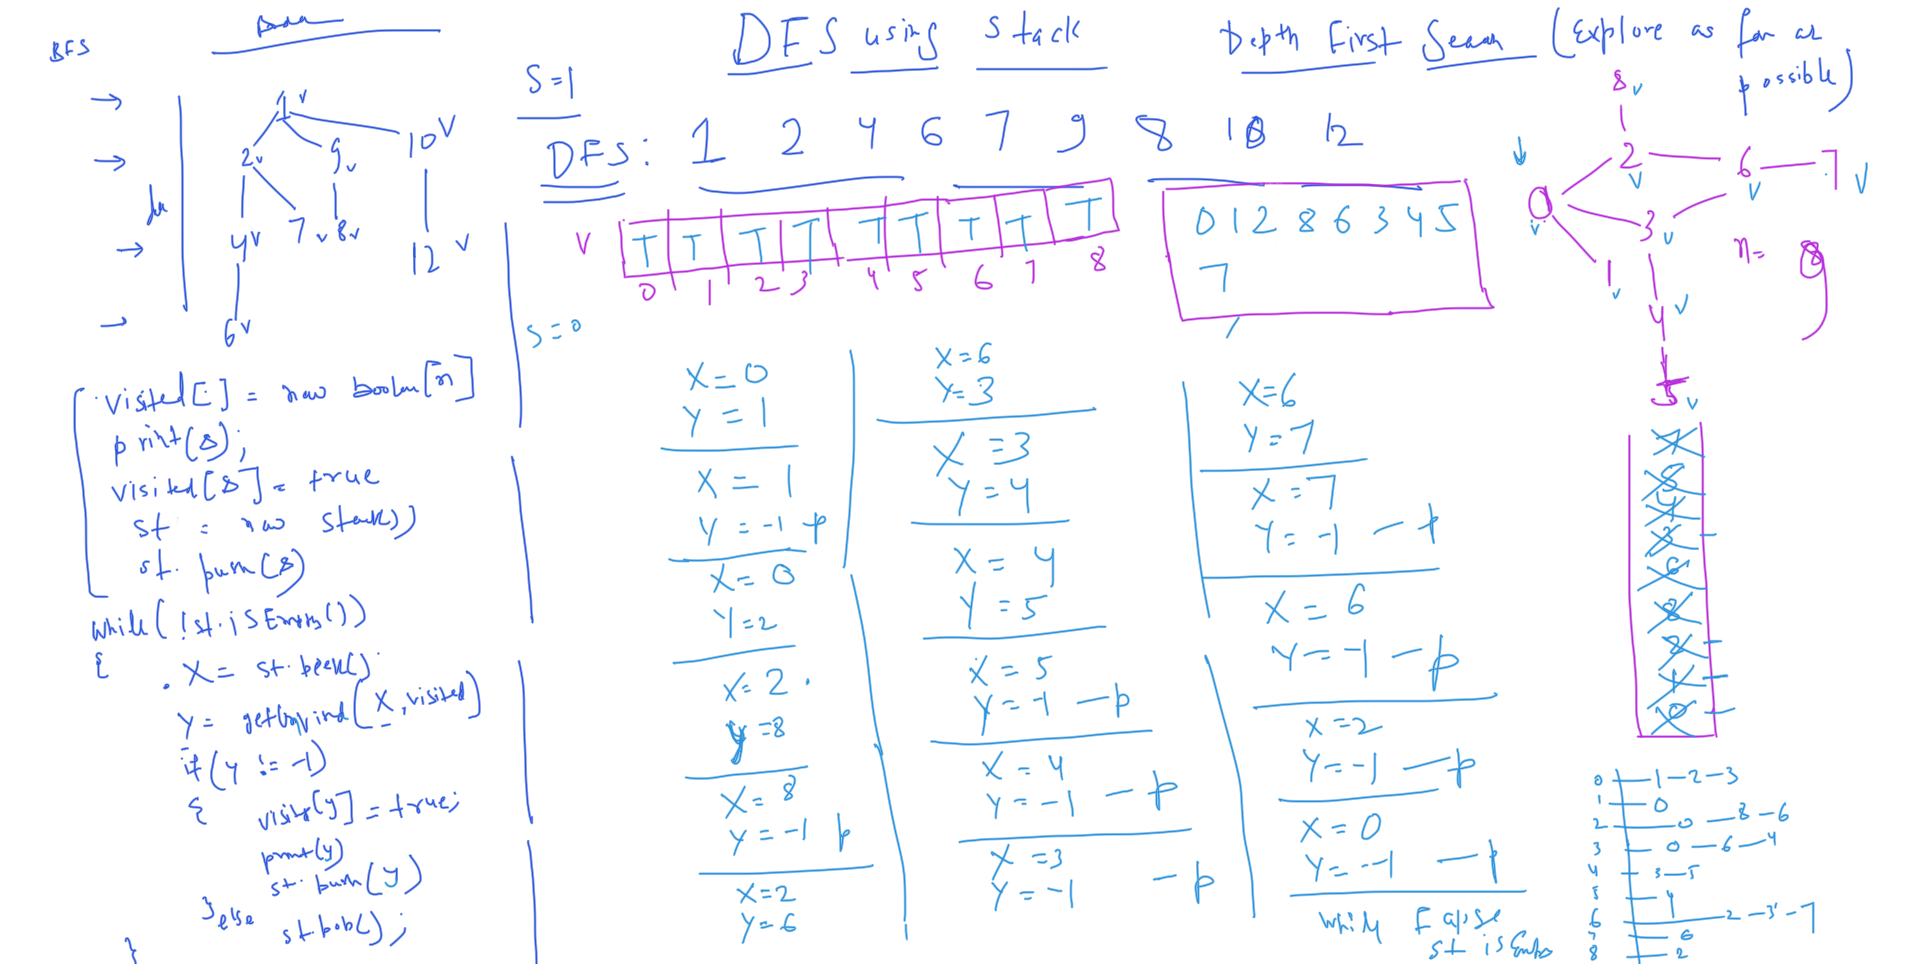 BFS
DFS using Stack
Depth First Search (Explore as far as possible)
S=1
DFS: 1 2 4 6 7 9 8 10 12
1 v
2 v 9 v 10 v
4 v 7 v 8 v 12 v
6 v
V T T T T T T T T T
0 1 2 3 4 5 6 7 8
0 1 2 8 6 3 4 5
7
8 v
2 v 6 v 7 v
0 v
3 v
1 v
4 v
5 v
n= 8
S=0
visited[] = new boolean[n]
print(s);
visited[s] = true
st = new stack()
st. push(s)
while(!st.isEmpty())
{
X = st.peek();
Y = (X, visited)
if(y != -1)
{
visited[y] = true;
print(y)
st.push(y)
}else
st.pop();
}
X=0
Y=1
X=1
Y=-1 p
X=0
Y=2
X=2
y=8
X=8
Y=-1 p
X=2
Y=6
X=6
Y=3
X=3
Y=4
X=4
Y=5
X=5
Y=-1 -p
X=4
Y=-1 -p
X=3
Y=-1 -p
X=6
Y=7
X=7
Y=-1 -p
X=6
Y=-1 -p
X=2
Y=-1 -p
X=0
Y=-1 -p
while False
st is Empty
7
5
4
3
6
8
2
1
0
0 1-2-3
1 0
2 0-8-6
3 0-6-4
4 3-5
5 4
6 2-3-7
7 6
8 2